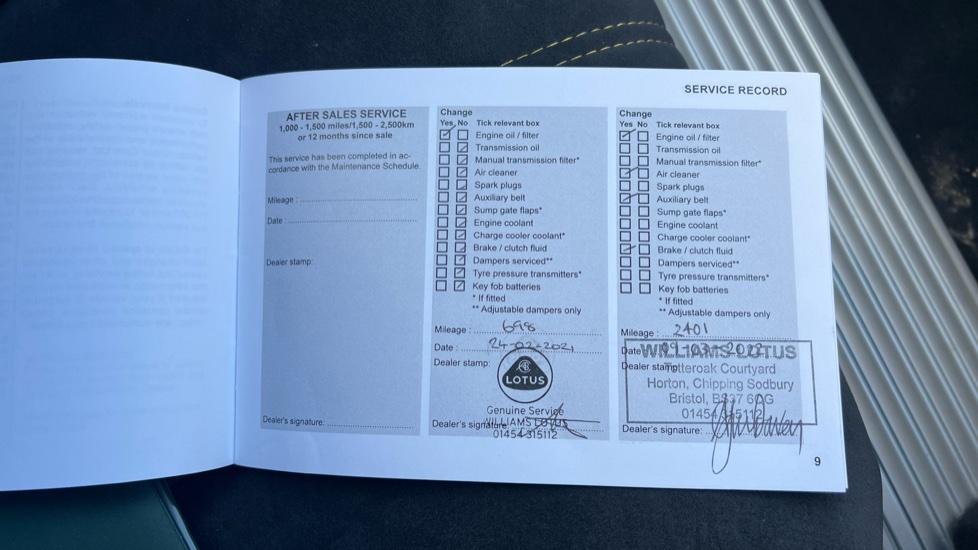 SERVICE RECORD
AFTER SALES SERVICE
1,000 - 1,500 miles/1,500 - 2,500km
or 12 months since sale
This service has been completed in ac-
cordance with the Maintenance Schedule.
Mileage :
Date :
Dealer stamp:
Dealer's signature:
Change
Yes No Tick relevant box
Engine oil / filter
Transmission oil
Manual transmission filter*
Air cleaner
Spark plugs
Auxiliary belt
Sump gate flaps*
Engine coolant
Charge cooler coolant*
Brake / clutch fluid
Dampers serviced**
Tyre pressure transmitters*
Key fob batteries
* If fitted
** Adjustable dampers only
Mileage : 698
Date : 24-02-2021
Dealer stamp:
LOTUS
Genuine Service
Dealer's signature: WILLIAMS LOTUS
01454 315112
Change
Yes No Tick relevant box
Engine oil / filter
Transmission oil
Manual transmission filter*
Air cleaner
Spark plugs
Auxiliary belt
Sump gate flaps*
Engine coolant
Charge cooler coolant*
Brake / clutch fluid
Dampers serviced**
Tyre pressure transmitters*
Key fob batteries
* If fitted
** Adjustable dampers only
Mileage : 2401
Date : WILLIAMS LOTUS
Dealer stamp: Courtyard
Horton, Chipping Sodbury
Bristol, BS37 6QG
01454 315112
Dealer's signature:
9